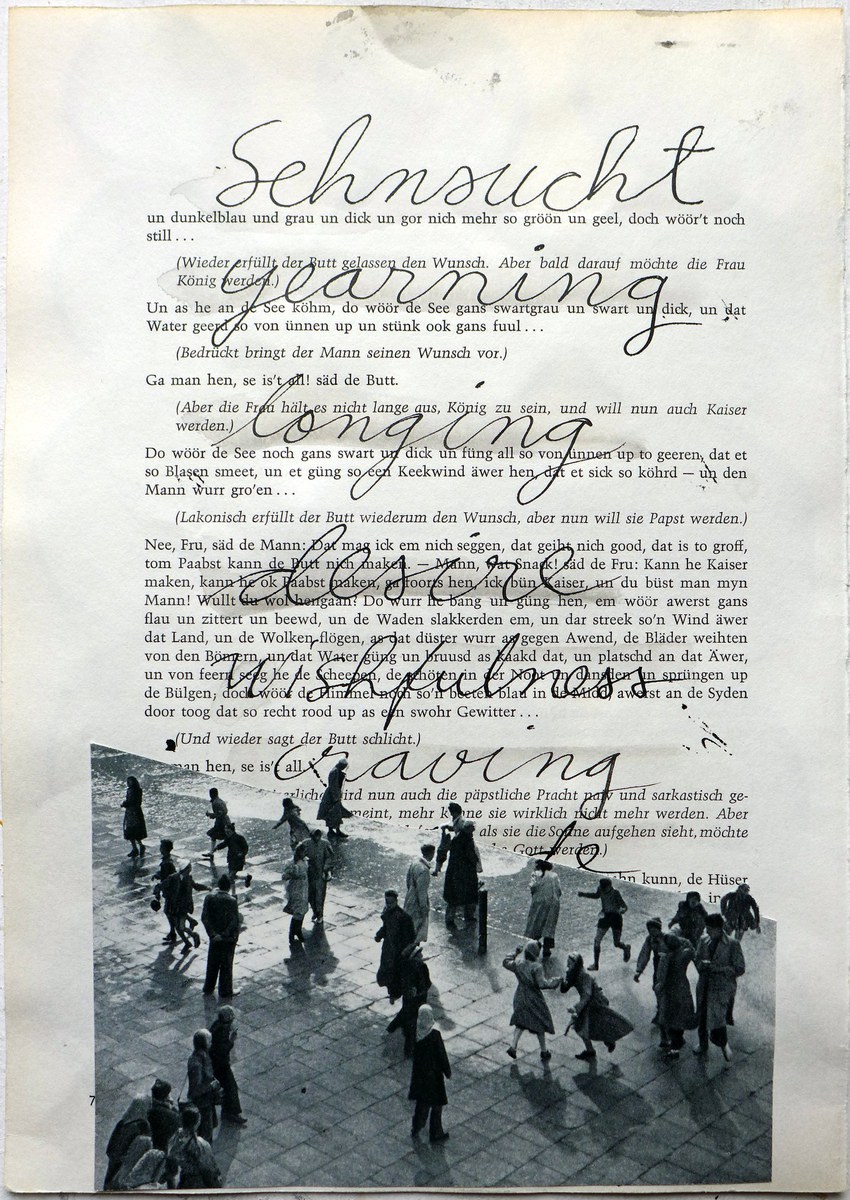 Sehnsucht
un dunkelblau und grau un dick un gor nich mehr so gröön un geel, doch wöör't noch
still . . .
(Wieder erfüllt der Butt gelassen den Wunsch. Aber bald darauf möchte die Frau
König werden.)
yearning
Un as he an de See köhm, do wöör de See gans swartgrau un swart un dick, un dat
Water geerd so von ünnen up un stünk ook gans fuul . . .
(Bedrückt bringt der Mann seinen Wunsch vor.)
Ga man hen, se is't all! säd de Butt.
(Aber die Frau hält es nicht lange aus, König zu sein, und will nun auch Kaiser
werden.)
longing
Do wöör de See noch gans swart un dick un füng all so von ünnen up to geeren, dat et
so Blasen smeet, un et güng so een Keekwind äwer hen, dat et sick so köhrd — un den
Mann wurr gro'en . . .
(Lakonisch erfüllt der Butt wiederum den Wunsch, aber nun will sie Papst werden.)
Nee, Fru, säd de Mann: Dat mag ick em nich seggen, dat geiht nich good, dat is to groff,
tom Paabst kann de Butt nich maken. — Mann, wat Snak! säd de Fru: Kann he Kaiser
desire
maken, kann he ok Paabst maken, ga foorts hen, ick bün Kaiser, un du büst man myn
Mann! Wullt du wol hengaan? Do wurr he bang un güng hen, em wöör awerst gans
flau un zittert un beewd, un de Waden slakkerden em, un dar streek so'n Wind äwer
dat Land, un de Wolken flögen, as dat düster wurr as gegen Awend, de Bläder weihten
von den Bömern, un dat Water güng un bruusd as kaakd dat, un platschd an dat Äwer,
wishfulness
un von feern seeg he de scheepen, de schöten in der Noot un dansden un sprüngen up
de Bülgen, doch wöör de Himmel noch so'n beetet blau in de Midd, awerst an de Syden
door toog dat so recht rood up as een swohr Gewitter . . .
(Und wieder sagt der Butt schlicht.)
craving
man hen, se is't all.
wird nun auch die päpstliche Pracht naiv und sarkastisch ge-
meint, mehr könne sie wirklich nicht mehr werden. Aber
als sie die Sonne aufgehen sieht, möchte
Gott werden.)
kunn, de Hüser
in
7